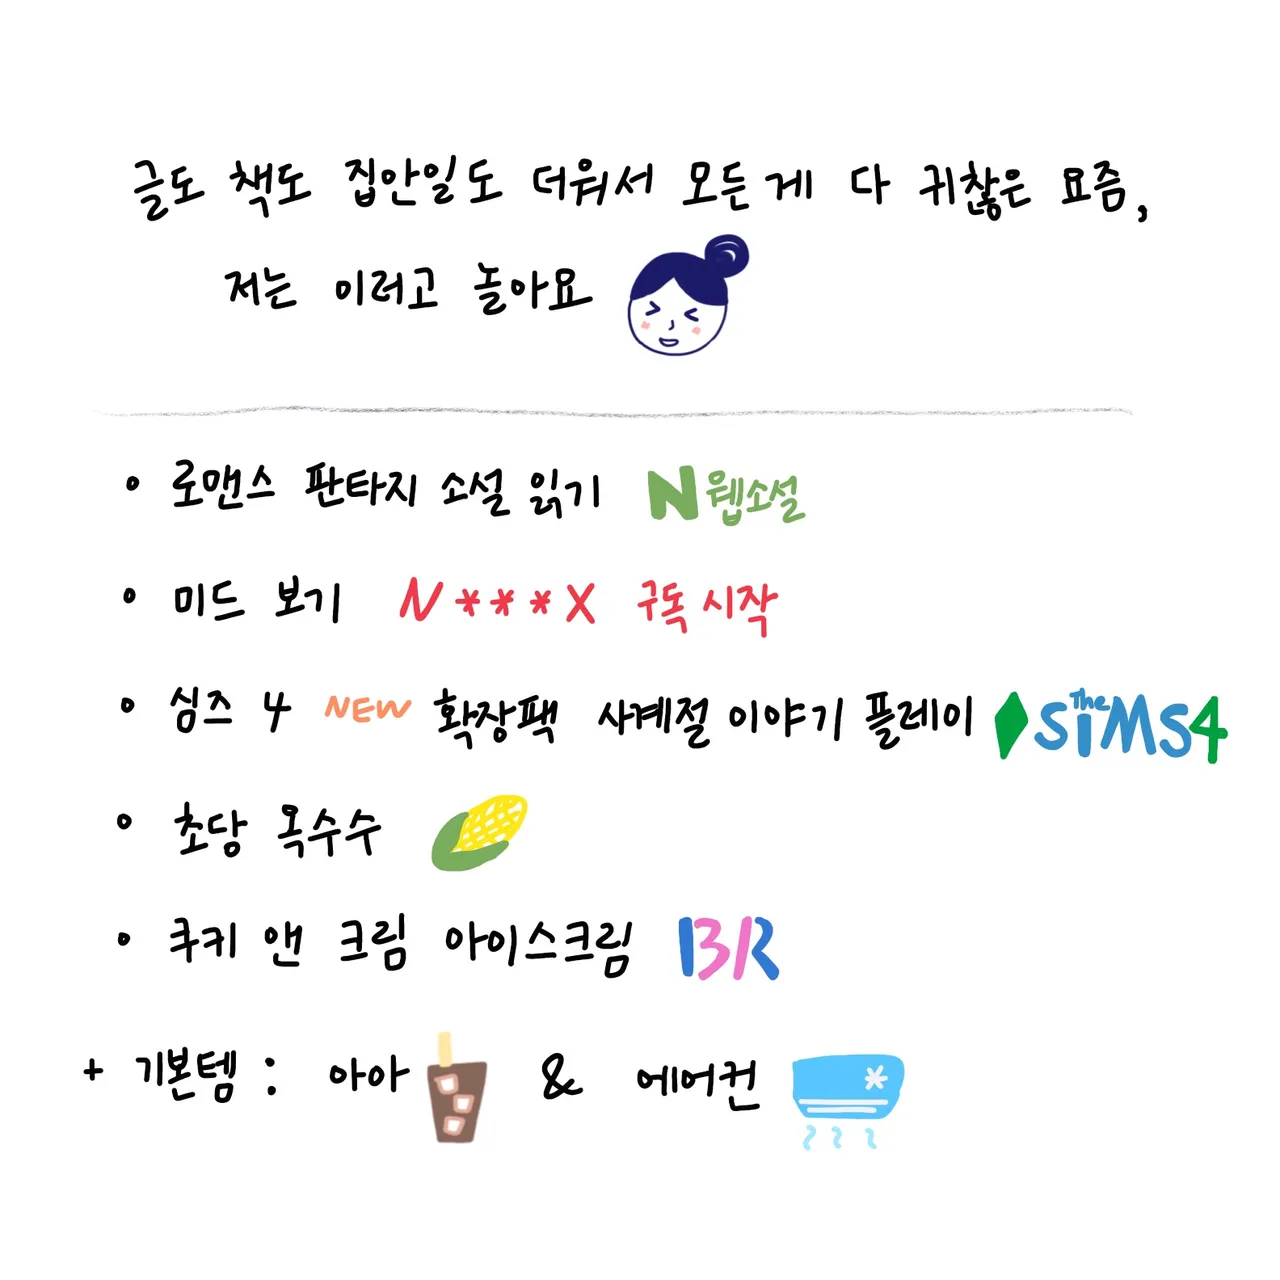 글도 책도 집안일도 더워서 모든게 다 귀찮은 요즘,
저는 이러고 놀아요
• 로맨스 판타지 소설 읽기 N 웹소설
• 미드 보기 N***X 구독 시작
• 심즈 4 NEW 확장팩 사계절 이야기 플레이 The SiMS4
• 초당 옥수수
• 쿠키 앤 크림 아이스크림 BR
+ 기본템 : 아아 & 에어컨